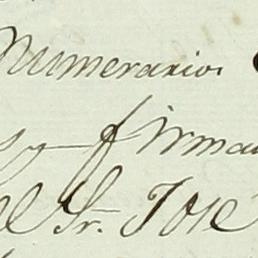 Numerario.
y firma
el Sr. Jose